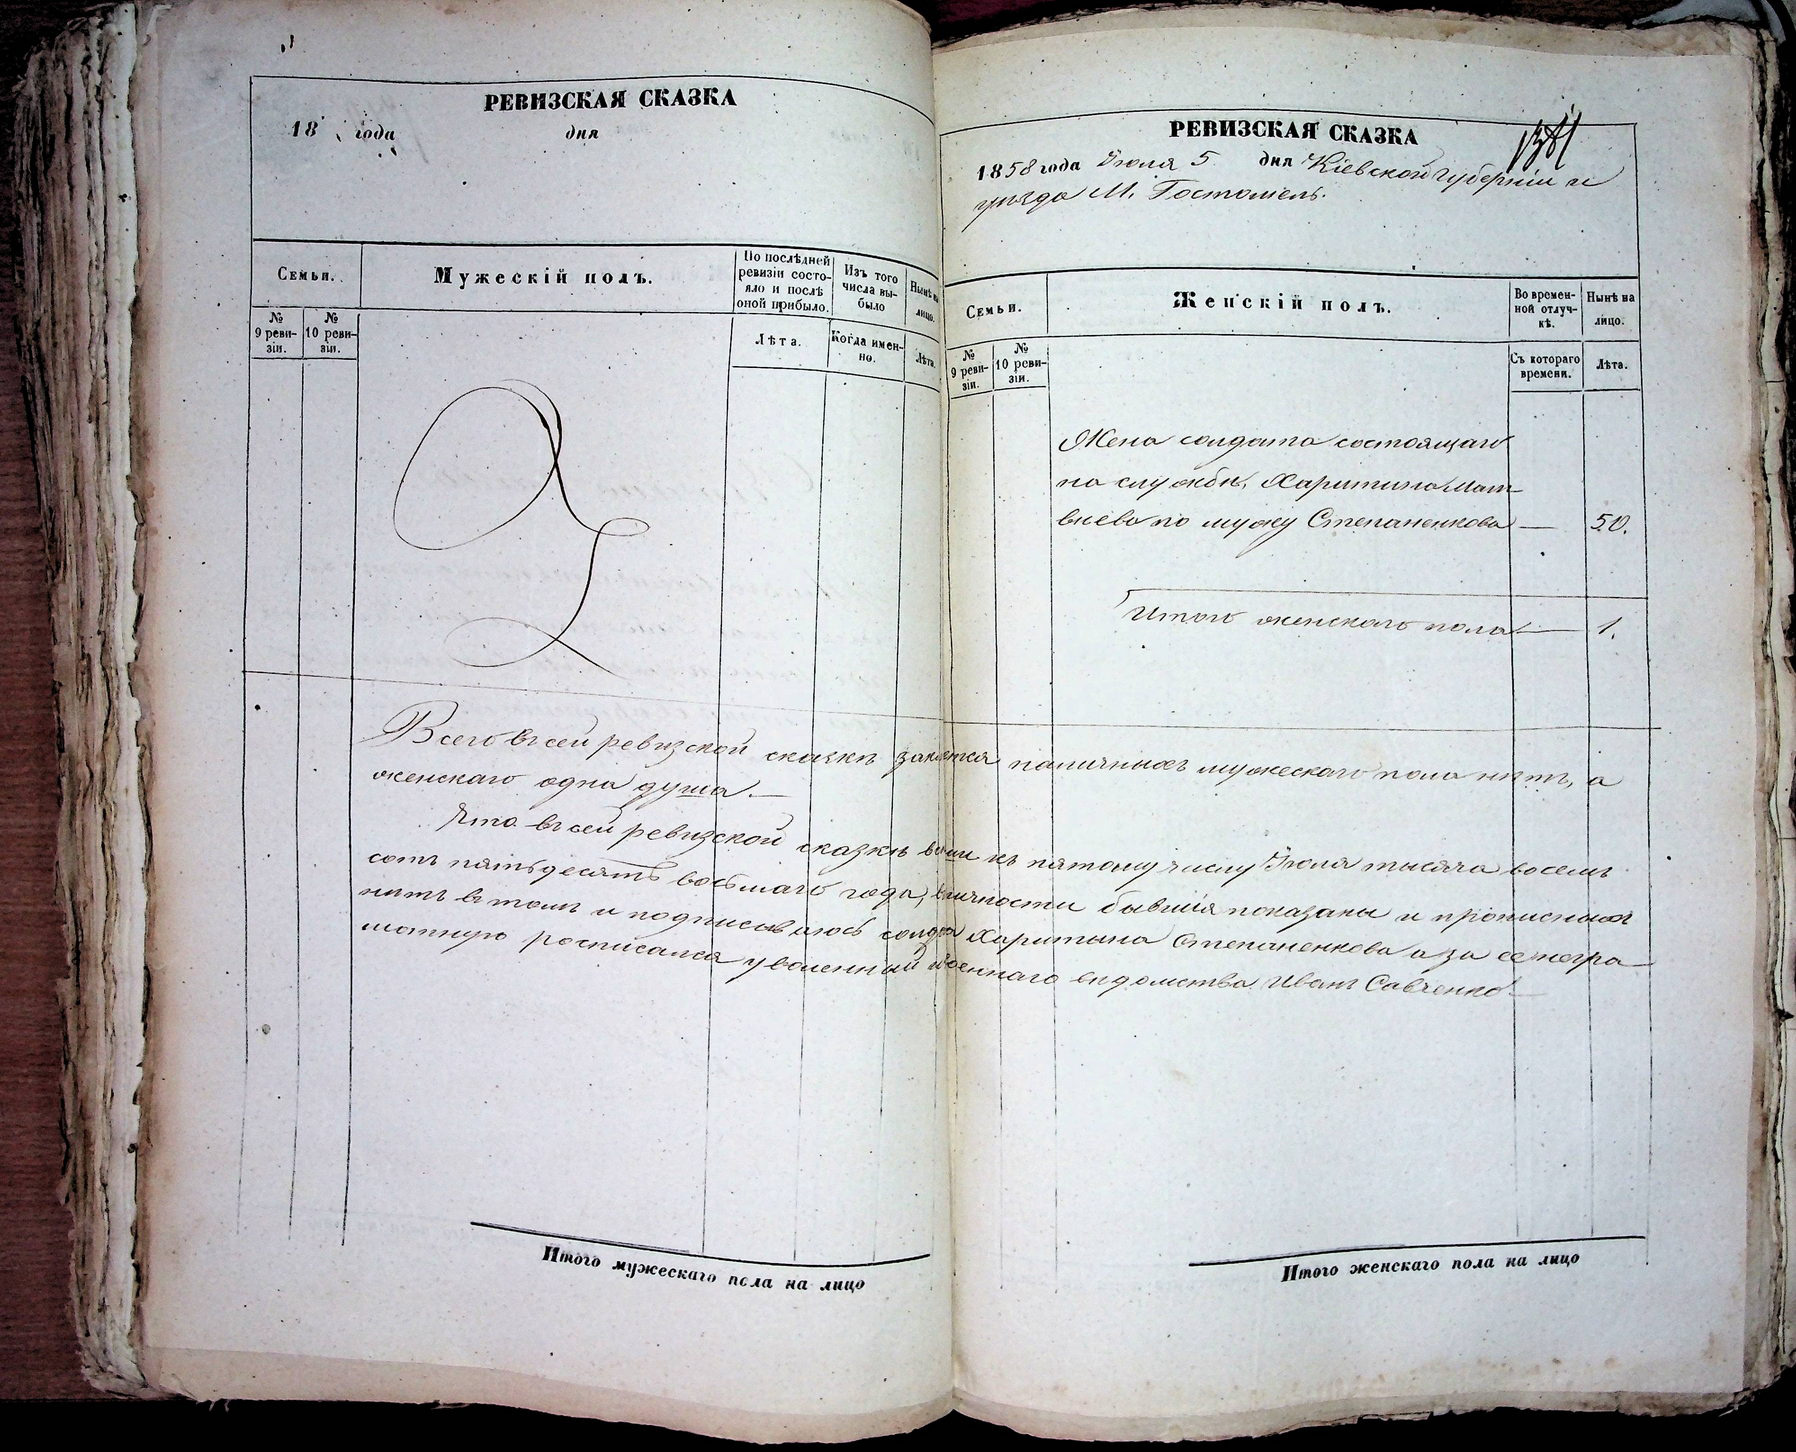 РЕВИЗСКАЯ СКАЗКА
18 года дня
Семьи.
Мужескій полъ.
По послѣдней ревизіи состо-
яло и послѣ оной прибыло.
Изъ того числа вы-
было
Нынѣ на лицо.
№ 9 реви-
зіи.
№ 10 реви-
зіи.
Лѣта.
Когда имен-
но.
Лѣта.
РЕВИЗСКАЯ СКАЗКА
1858 года Іюля 5 дня Кіевской губерніи и
уѣзда М. Гостомель.
Семьи.
Женскій полъ.
Во времен-
ной отлуч-
кѣ.
Нынѣ на лицо.
№ 9 реви-
зіи.
№ 10 реви-
зіи.
Съ котораго времени.
Лѣта.
Жена солдата состоящаго
на службѣ, Харитина Мат-
вѣева по мужу Степаненкова — 50.
Итого женскаго пола — 1.
Всего въ сей ревизской сказкѣ наличныхъ мужескаго пола нѣтъ, а
женскаго одна душа. —
Что въ сей ревизской сказкѣ всѣ къ пятому числу Іюля тысяча восемь
сотъ пятьдесятъ восьмаго года, бывшія показаны и прописныхъ
нѣтъ въ томъ и подписываюсь Харитина Степаненкова а за ее негра-
мотную росписался уволенный военнаго вѣдомства Иванъ Савченко —
Итого мужескаго пола на лицо
Итого женскаго пола на лицо